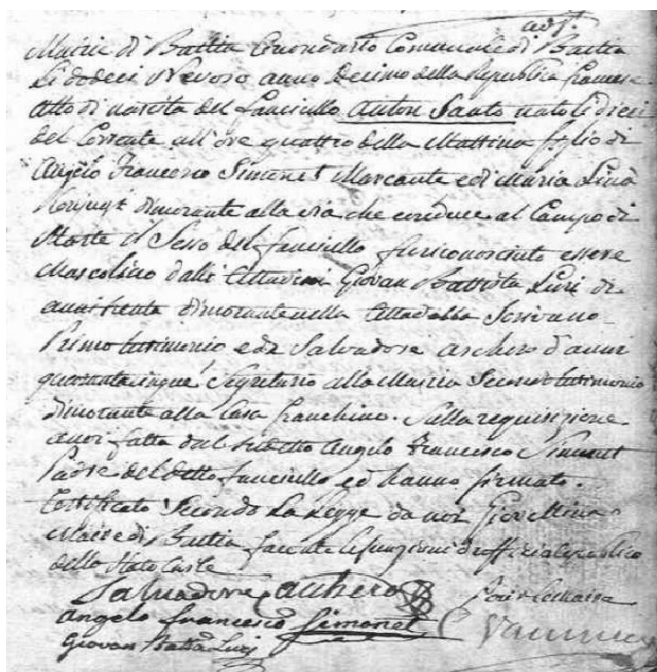 adj.t
Mairie di Bastia Circondario Comunale di Bastia
Li dodeci Nevoso anno Decimo della Republica francese
Atto di nascita del fanciullo Anton Santo nato li dieci
del Corrente all'ore quattro della Mattina figlio di
Angelo Francesco Simonet Marcante e di Maria
Conjugi dimorante alla via che conduce al Campo di
Marte il Sesso del fanciullo fu riconosciuto essere
Mascolino dalli Cittadini Giovan Battista Luri di
anni trenta dimorante nella Cittadella
Primo testimonio e da Salvadore Archero d'anni
quaranta cinque Segretario alla Mairia Secondo testimonio
dimorante alla Casa franchino. Sulla requisizione
a noi fatta dal sudetto Angelo Francesco Simonet
Padre del detto fanciullo ed hanno firmato.
Certificato Secondo La Legge da noi
Maire di Bastia facente le funzioni d'officiale publico
dello Stato Civile
Salvadore Archero
Angelo francesco Simonet
Giovan Batta Luri